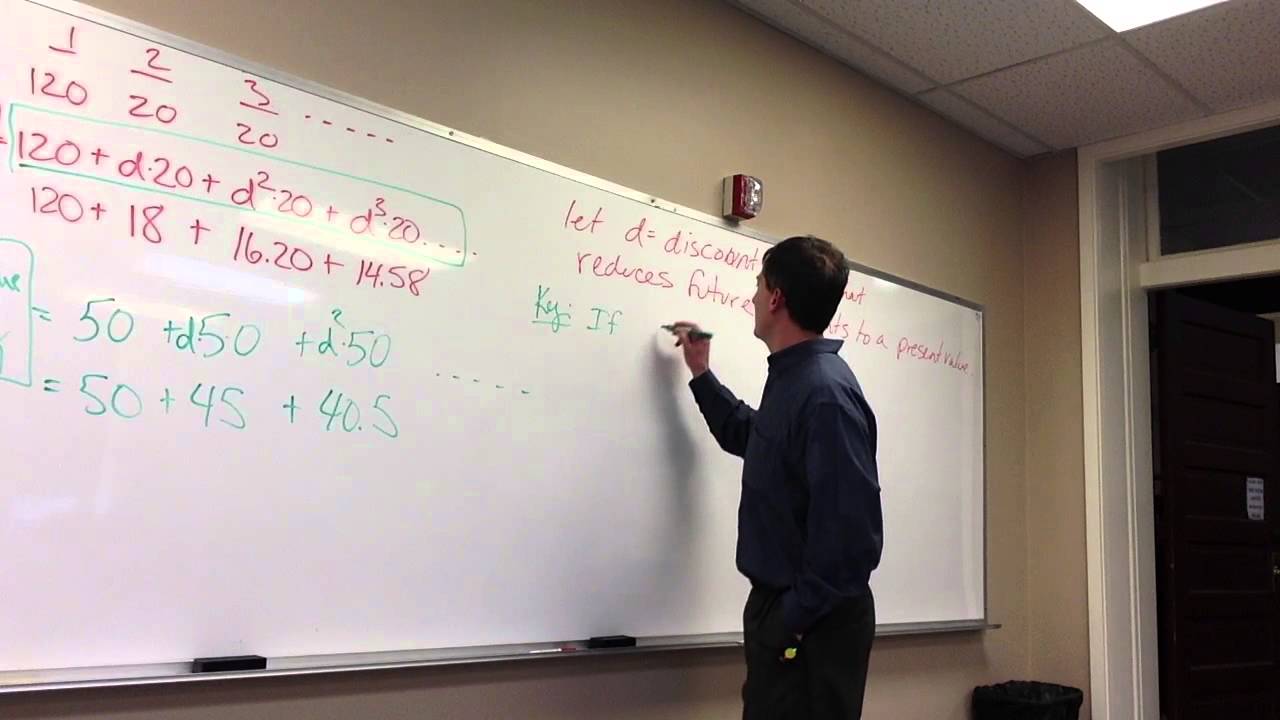 1 2 3 .....
120 20 20
120 + d·20 + d²·20 + d³·20 ....
120 + 18 + 16.20 + 14.58
= 50 + d50 + d²·50 .....
= 50 + 45 + 40.5
let d = discount
reduces future to a present value.
Key: If